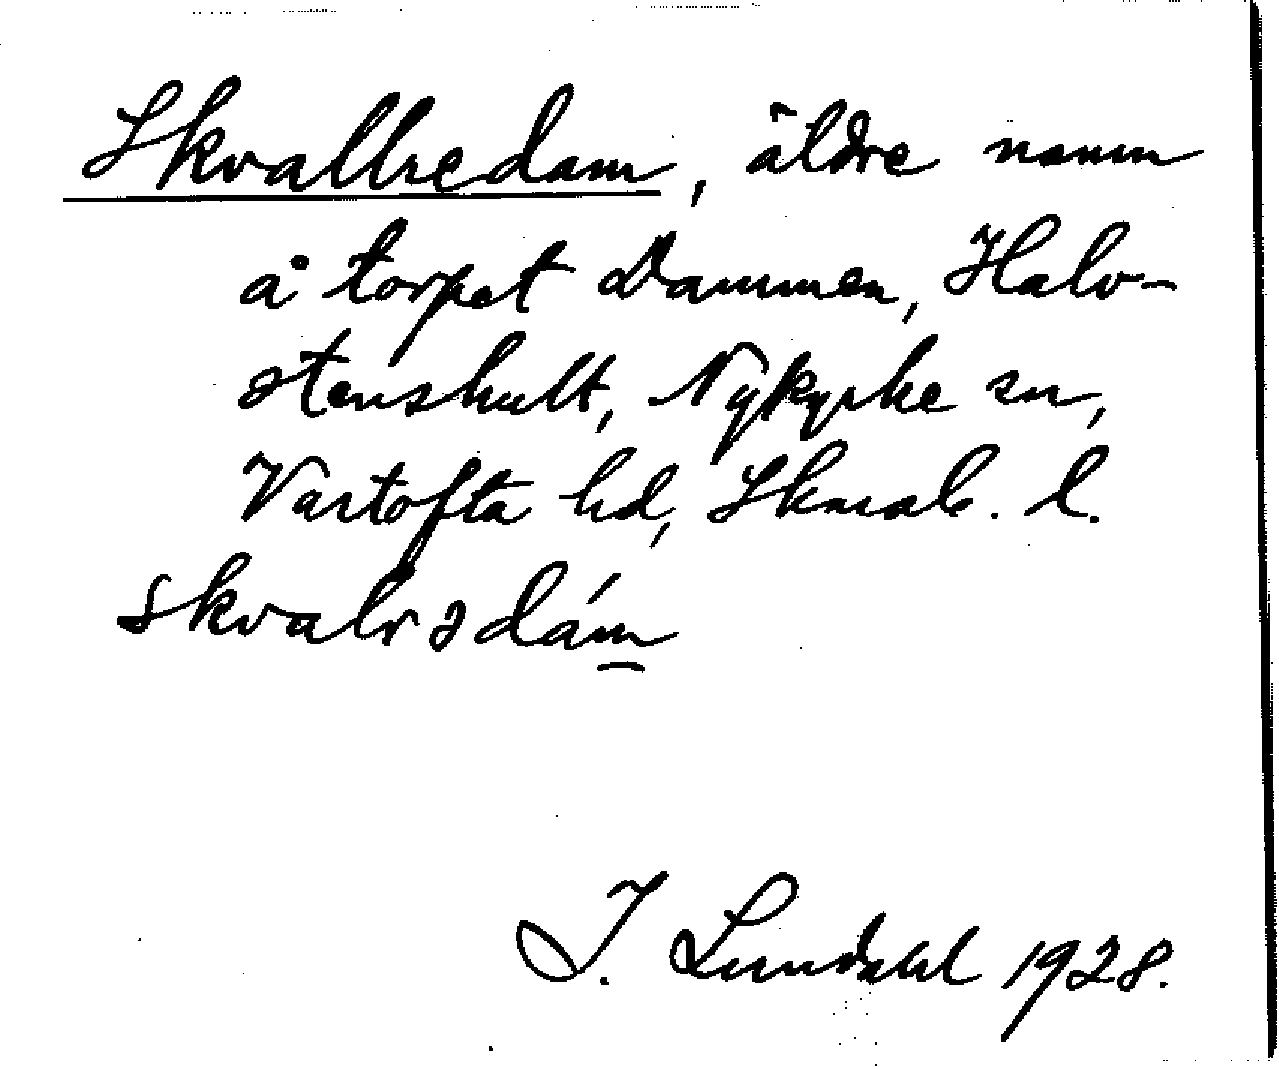 Skvallredam, äldre namn
å torpet Dammen, Halv-
stenshult, Nykyrke sn,
Vartofta hd, Skarab. l.
skvalrədám̲
I. Lundahl 1928.